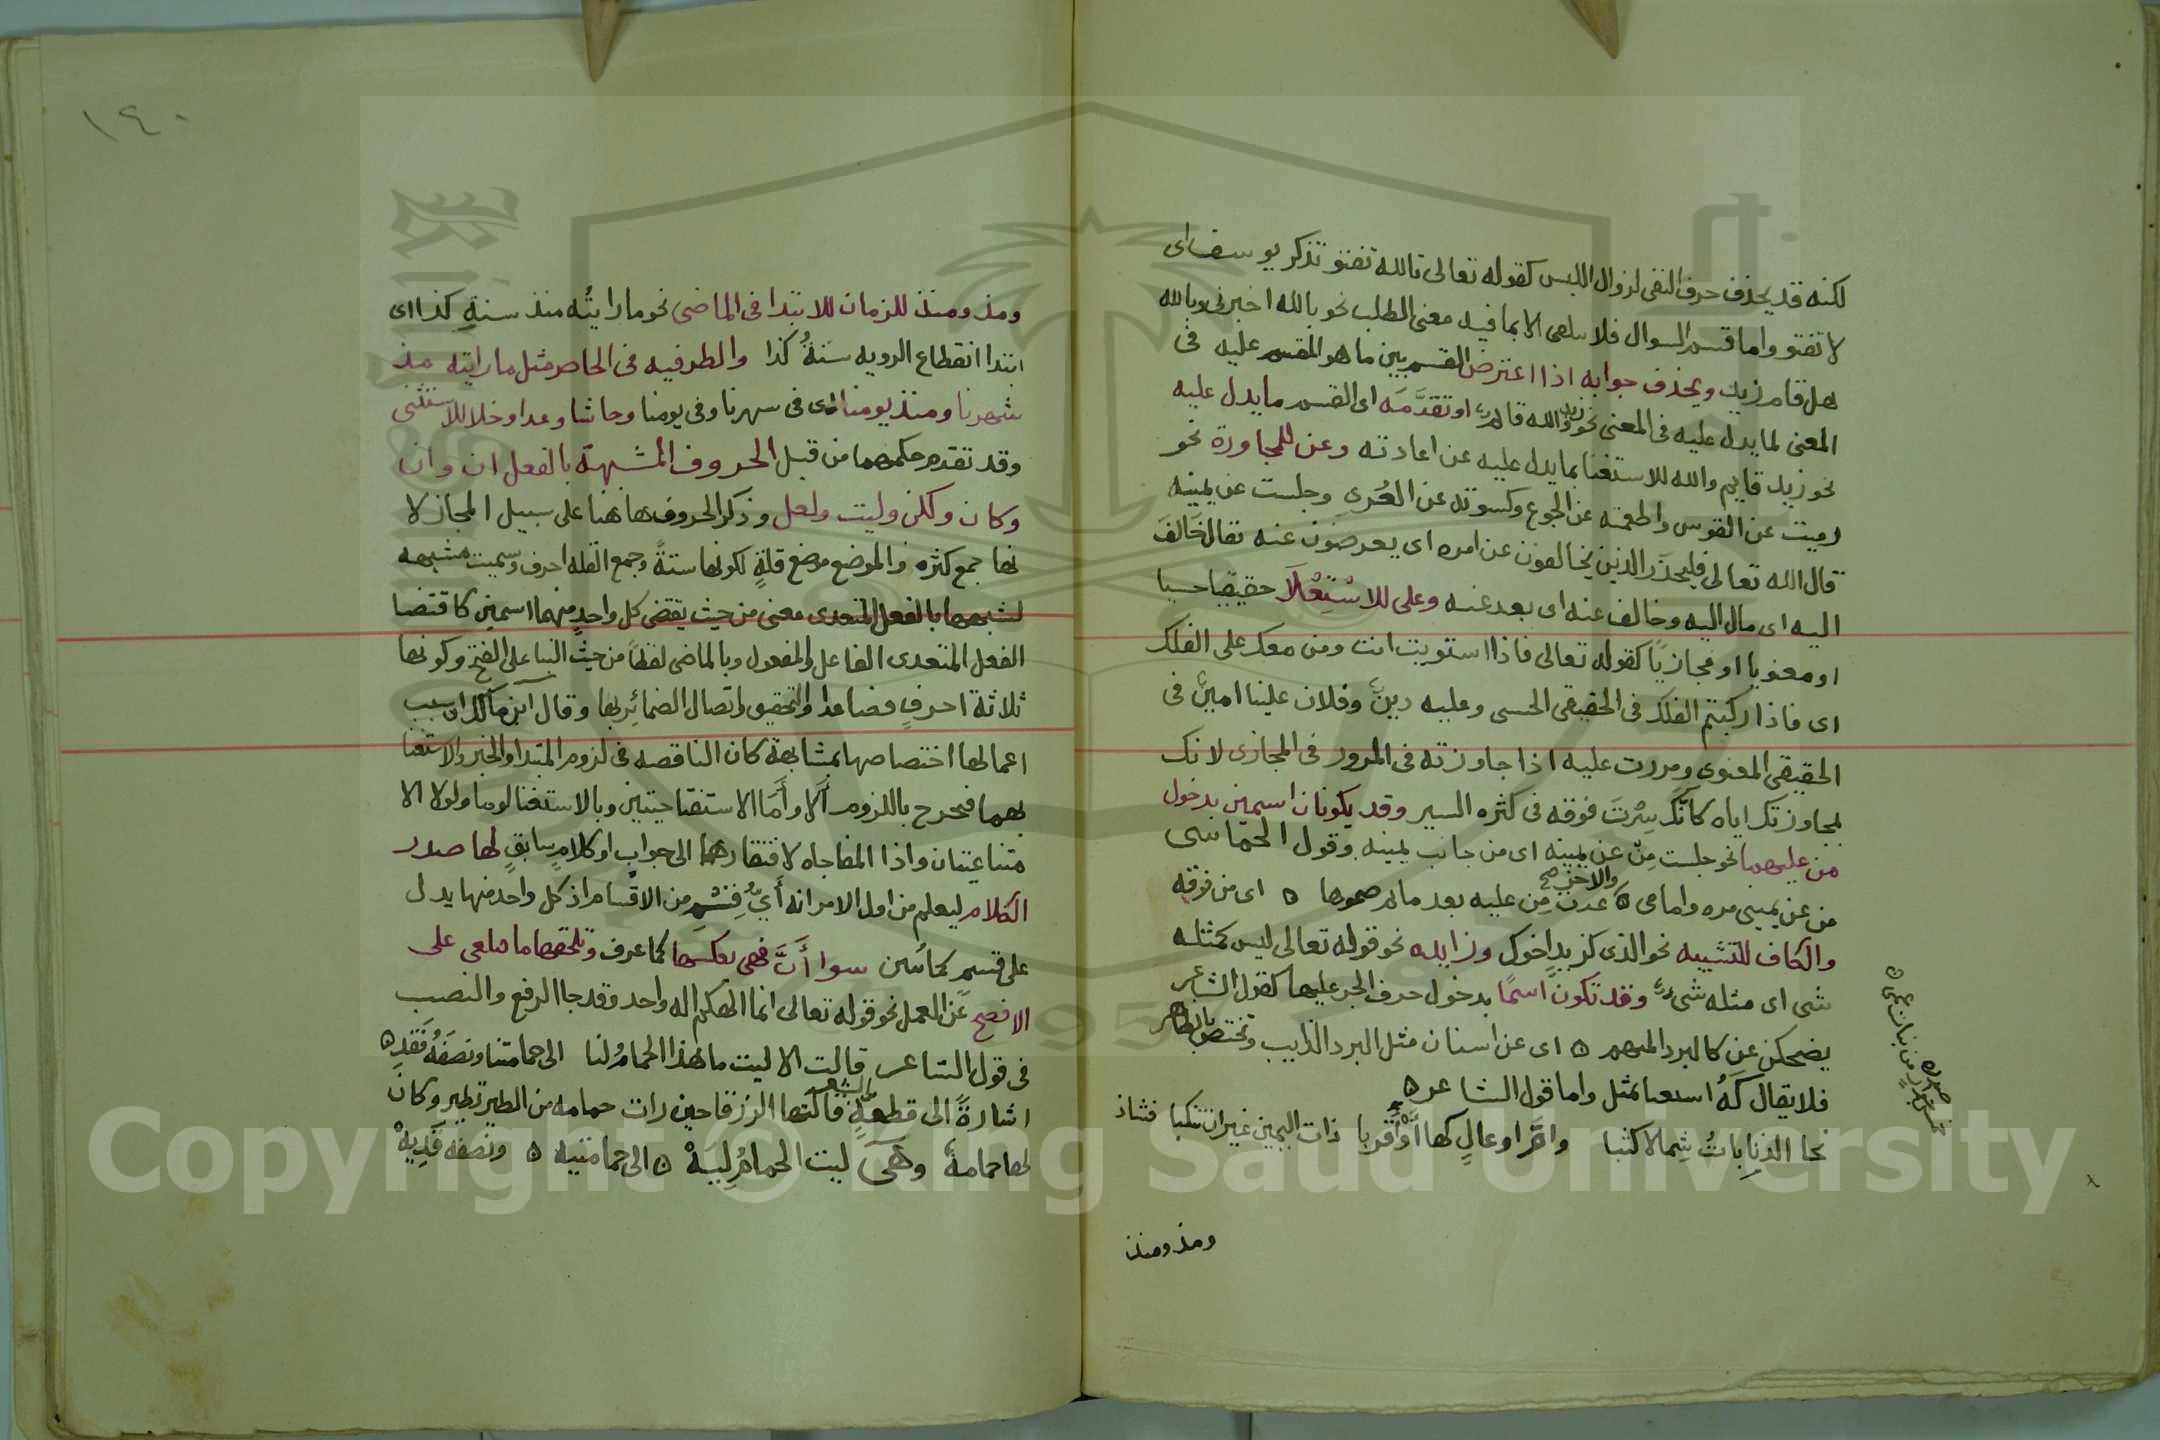 لكنه قد يحذف حرف النفى لزوال اللبس كقوله تعالى تالله تفتؤ تذكر يوسف اى
لا تفتؤ واما قسم السوال فلا يتلقى الا بما فيه معنى الطلب نحو بالله اخبرنى وبالله
هل قام زيد ويحذف جوابه اذا اعترض القسم بين ما هو المقسم عليه فى
المعنى لما يدل عليه فى المعنى نحو زيد والله قايم او تقدمه اى القسم ما يدل عليه
نحو زيد قايم والله للاستغنا بما يدل عليه عن اعادته وعن للمجاوزة نحو
رميت عن القوس واطعمته عن الجوع وكسوته عن العُرى وجلست عن يمينه
قال الله تعالى فليحذر الذين يخالفون عن امره اى يعرضون عنه يقال خالف
اليه اى مال اليه وخالف عنه اى بعد عنه وعلى للاستعلا حقيقيا حسيا
او معنويا او مجازيا كقوله تعالى فاذا استويت انت ومن معك على الفلك
اى فاذا ركبتم الفلك فى الحقيقى الحسى وعليه دين وفلان علينا امين فى
الحقيقى المعنوى ومررت عليه اذا جاوزته فى المرور فى المجازى لانك
بمجاوزتك اياه كانك سرت فوقه فى كثره السير وقد يكونان اسمين بدخول
من عليهما نحو جلست من عن يمينه اى من جانب يمينه وقول الحماسى
من عن يمينى مره وامامى ٥ والاخر صح غدت من عليه بعد ما تم ٥ اى من فوقه
والكاف للتشبيه نحو الذى كزيد اخوك وزايده نحو قوله تعالى ليس كمثله
شى اى مثله شى وقد تكون اسما بدخول حرف الجر عليها كقول الشاعر
يضحكن عن كالبرد المنهم ٥ اى عن اسنان مثل البرد الذايب وتختص بالظاهر
فلا يقال كه استغنا بمثل واما قول الشاعر ٥
نحا الذنابات شمالا كثبا وام اوعال كها او اقربا ذات اليمين غير ان تنكبا فشاذ
صدره
ومذ ومنذ
١٤٠
ومذ ومنذ للزمان للابتدا فى الماضى نحو ما رايته منذ سنة كذا اى
ابتدا انقطاع الرويه سنة كذا والظرفيه فى الحاضر مثل ما رايته مذ
شهرنا ومنذ يومنا اى فى شهرنا وفى يومنا وحاشا وعدا وخلا للاستثنى
وقد تقدم حكمهما من قبل الحروف المشبهة بالفعل ان وان
وكان ولكن وليت ولعل وذكر الحروف هاهنا على سبيل المجاز لا
نها جمع كثره والموضع موضع قلة لكونها ستة وجمع القله احرف وسميت مشبهه
لشبهها بالفعل المتعدى معنى من حيث يقتضى كل واحد منهما اسمين كاقتضا
الفعل المتعدى الفاعل والمفعول وبالماضى لفظا من حيث البنا على الفتح وكونها
ثلاثة احرف فصاعدا والتحقيق واتصال الضمائر بها وقال ابن مالك ان سبب
اعمالها اختصاصها بمشابهة كان الناقصه فى لزوم المبتدا والخبر والاستغنا
بهما فخرج باللزوم الا واما الاستفتاحيتين وبالاستغنا لوما ولولا الا
متناعيتان واذا المفاجاه لافتقارهما الى جواب او كلام سابق لها صدر
الكلام ليعلم من اول الامر انه اى قسم من الاقسام اذ كل واحد منها يدل
على قسم كحاسن سوا ان فهى بعكسها كما عرف وتلحقها ما فتلغى على
الافصح عن العمل نحو قوله تعالى انما الهكم اله واحد وقد جا الرفع والنصب
فى قول الشاعر قالت الا ليت ما هذا الحمام لنا الى حمامتنا ونصفه فقد ٥
اشارة الى قطعة من الشعر قالتها الزرقا حين رات حمامه من الطير تطير وكان
لها حمامة وهى ليت الحمام ليه ٥ الى حمامتيه ٥ ونصفه قديه